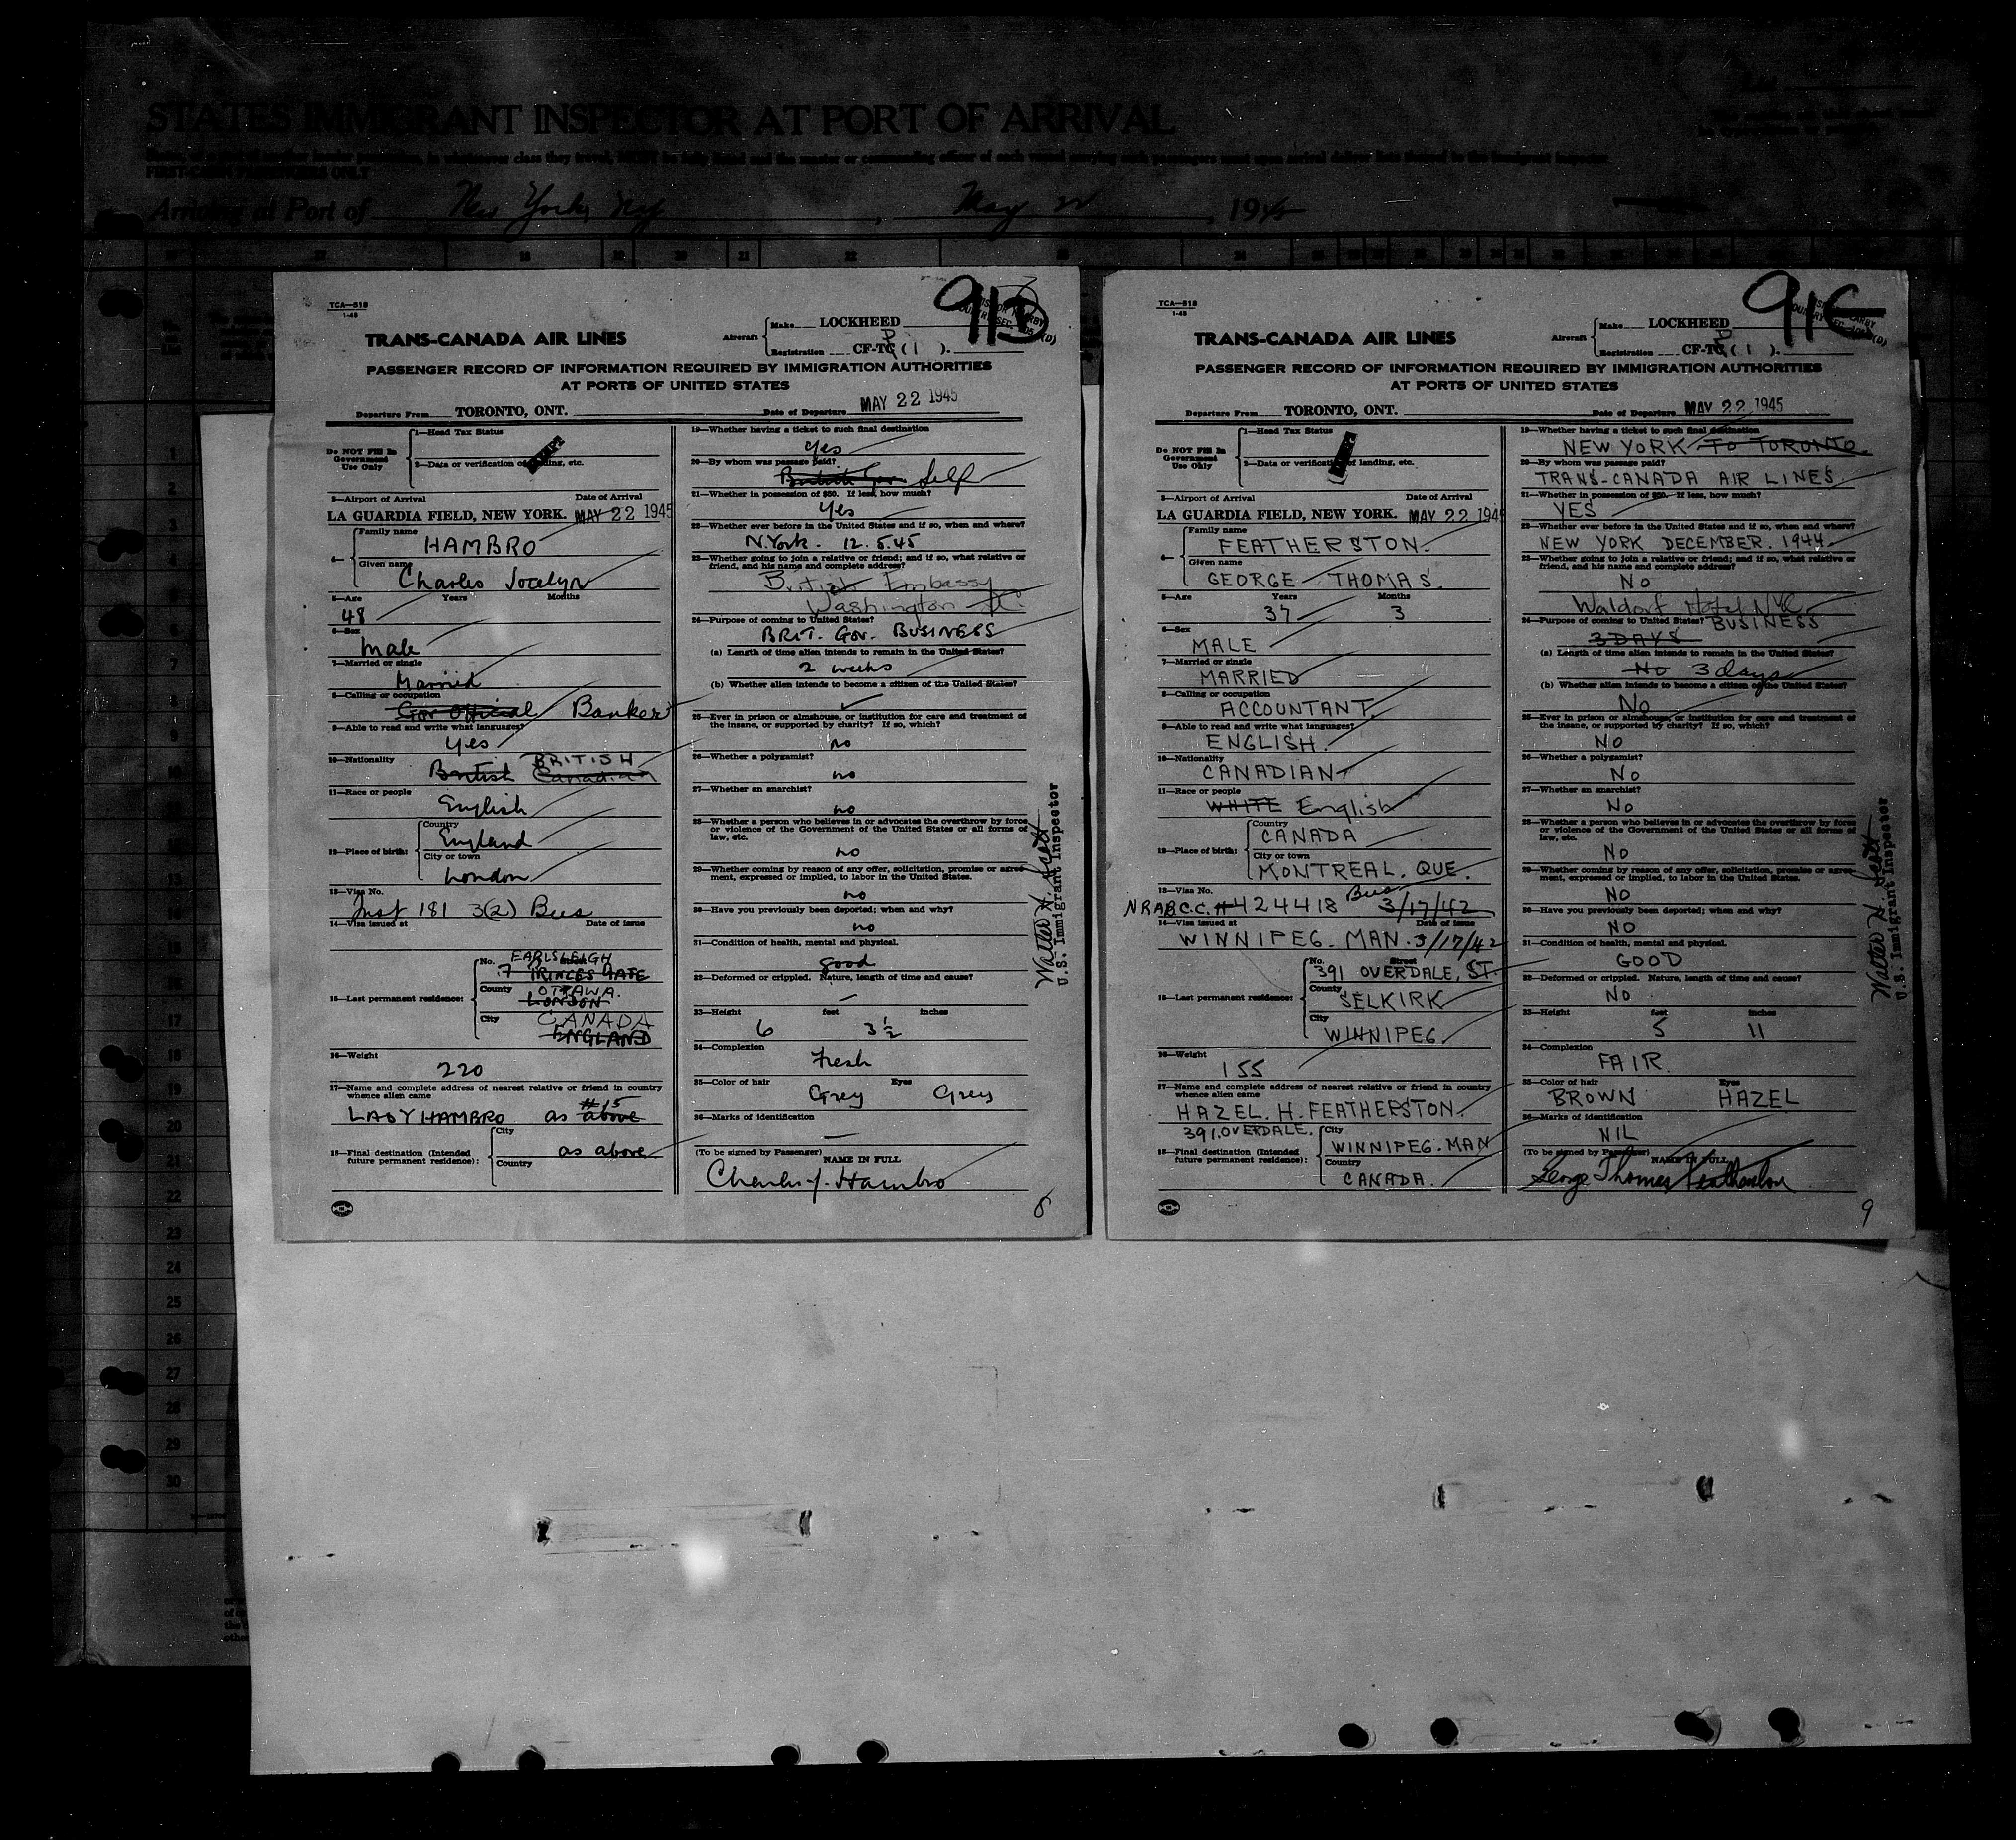 STATES IMMIGRANT INSPECTOR AT PORT OF ARRIVAL
FIRST-CABIN PASSENGERS ONLY
Arriving at Port of New York, NY, May 22, 1945
TCA—518
1-45
TRANS-CANADA AIR LINES
Aircraft
Make LOCKHEED
Registration CF-TC (1).
PASSENGER RECORD OF INFORMATION REQUIRED BY IMMIGRATION AUTHORITIES
AT PORTS OF UNITED STATES
Departure From TORONTO, ONT. Date of Departure MAY 22 1945
Do NOT Fill In
Government
Use Only
1—Head Tax Status
2—Data or verification of landing, etc.
3—Airport of Arrival Date of Arrival
LA GUARDIA FIELD, NEW YORK. MAY 22 1945
4—
Family name
HAMBRO
Given name
Charles Jocelyn
5—Age Years Months
48
6—Sex
male
7—Married or single
Married
8—Calling or occupation
Gov Official Banker
9—Able to read and write what languages?
Yes
10—Nationality
BRITISH
British Canadian
11—Race or people
English
12—Place of birth:
Country
England
City or town
London
13—Visa No.
Inst 181 3(2) Bus
14—Visa issued at Date of issue
15—Last permanent residence:
No. Street
EARLSLEIGH
7 PRINCES GATE
County
OTTAWA.
LONDON
City
CANADA
ENGLAND
16—Weight
220
17—Name and complete address of nearest relative or friend in country
whence alien came
#15
LADY HAMBRO as above
18—Final destination (Intended
future permanent residence):
City
as above
Country
19—Whether having a ticket to such final destination
Yes
20—By whom was passage paid?
British Gov. Self
21—Whether in possession of $50. If less, how much?
Yes
22—Whether ever before in the United States and if so, when and where?
N.York. 12.5.45
23—Whether going to join a relative or friend; and if so, what relative or
friend, and his name and complete address?
British Embassy
Washington DC
24—Purpose of coming to United States?
BRIT. GOV. BUSINESS
(a) Length of time alien intends to remain in the United States?
2 weeks
(b) Whether alien intends to become a citizen of the United States?
25—Ever in prison or almshouse, or institution for care and treatment of
the insane, or supported by charity? If so, which?
no
26—Whether a polygamist?
no
27—Whether an anarchist?
no
28—Whether a person who believes in or advocates the overthrow by force
or violence of the Government of the United States or all forms of
law, etc.
no
29—Whether coming by reason of any offer, solicitation, promise or agree-
ment, expressed or implied, to labor in the United States.
no
30—Have you previously been deported; when and why?
no
31—Condition of health, mental and physical.
good
32—Deformed or crippled. Nature, length of time and cause?
—
33—Height feet inches
6 3½
34—Complexion
Fresh
35—Color of hair Eyes
Grey Grey
36—Marks of identification
—
(To be signed by Passenger)
NAME IN FULL
Charles J. Hambro
8
Walter H. Scott
U.S. Immigrant Inspector
TCA—518
1-45
91E
TRANS-CANADA AIR LINES
Aircraft
Make LOCKHEED
Registration CF-TC (1).
PASSENGER RECORD OF INFORMATION REQUIRED BY IMMIGRATION AUTHORITIES
AT PORTS OF UNITED STATES
Departure From TORONTO, ONT. Date of Departure MAY 22 1945
Do NOT Fill In
Government
Use Only
1—Head Tax Status
2—Data or verification of landing, etc.
3—Airport of Arrival Date of Arrival
LA GUARDIA FIELD, NEW YORK. MAY 22 1945
4—
Family name
FEATHERSTON.
Given name
GEORGE THOMAS.
5—Age Years Months
37 3
6—Sex
MALE
7—Married or single
MARRIED
8—Calling or occupation
ACCOUNTANT.
9—Able to read and write what languages?
ENGLISH.
10—Nationality
CANADIAN
11—Race or people
WHITE English
12—Place of birth:
Country
CANADA
City or town
MONTREAL, QUE.
13—Visa No. Bus
NRABCC. #424418 3/17/42
14—Visa issued at Date of issue
WINNIPEG. MAN. 3/17/42
15—Last permanent residence:
No. Street
391 OVERDALE, ST.
County
SELKIRK
City
WINNIPEG.
16—Weight
155
17—Name and complete address of nearest relative or friend in country
whence alien came
HAZEL. H. FEATHERSTON.
391, OVERDALE.
18—Final destination (Intended
future permanent residence):
City
WINNIPEG. MAN
Country
CANADA.
19—Whether having a ticket to such final destination
NEW YORK TO TORONTO.
20—By whom was passage paid?
TRANS-CANADA AIR LINES
21—Whether in possession of $50. If less, how much?
YES
22—Whether ever before in the United States and if so, when and where?
NEW YORK DECEMBER. 1944
23—Whether going to join a relative or friend; and if so, what relative or
friend, and his name and complete address?
NO
Waldorf Hotel NYC
24—Purpose of coming to United States? BUSINESS
3 DAYS
(a) Length of time alien intends to remain in the United States?
No 3 days
(b) Whether alien intends to become a citizen of the United States?
No
25—Ever in prison or almshouse, or institution for care and treatment of
the insane, or supported by charity? If so, which?
NO
26—Whether a polygamist?
NO
27—Whether an anarchist?
NO
28—Whether a person who believes in or advocates the overthrow by force
or violence of the Government of the United States or all forms of
law, etc.
NO
29—Whether coming by reason of any offer, solicitation, promise or agree-
ment, expressed or implied, to labor in the United States.
NO
30—Have you previously been deported; when and why?
NO
31—Condition of health, mental and physical.
GOOD
32—Deformed or crippled. Nature, length of time and cause?
NO
33—Height feet inches
5 11
34—Complexion
FAIR.
35—Color of hair Eyes
BROWN HAZEL
36—Marks of identification
NIL
(To be signed by Passenger)
NAME IN FULL
George Thomas Featherston
9
Walter H. Scott
U.S. Immigrant Inspector